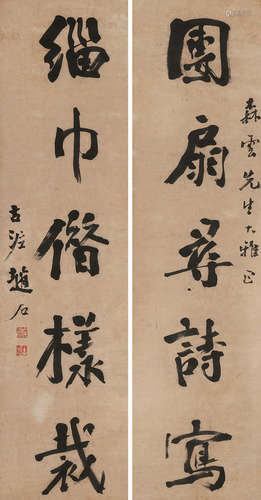 森雲先生大雅正
團扇尋詩寫
緇巾僭樣裁
古泥趙石